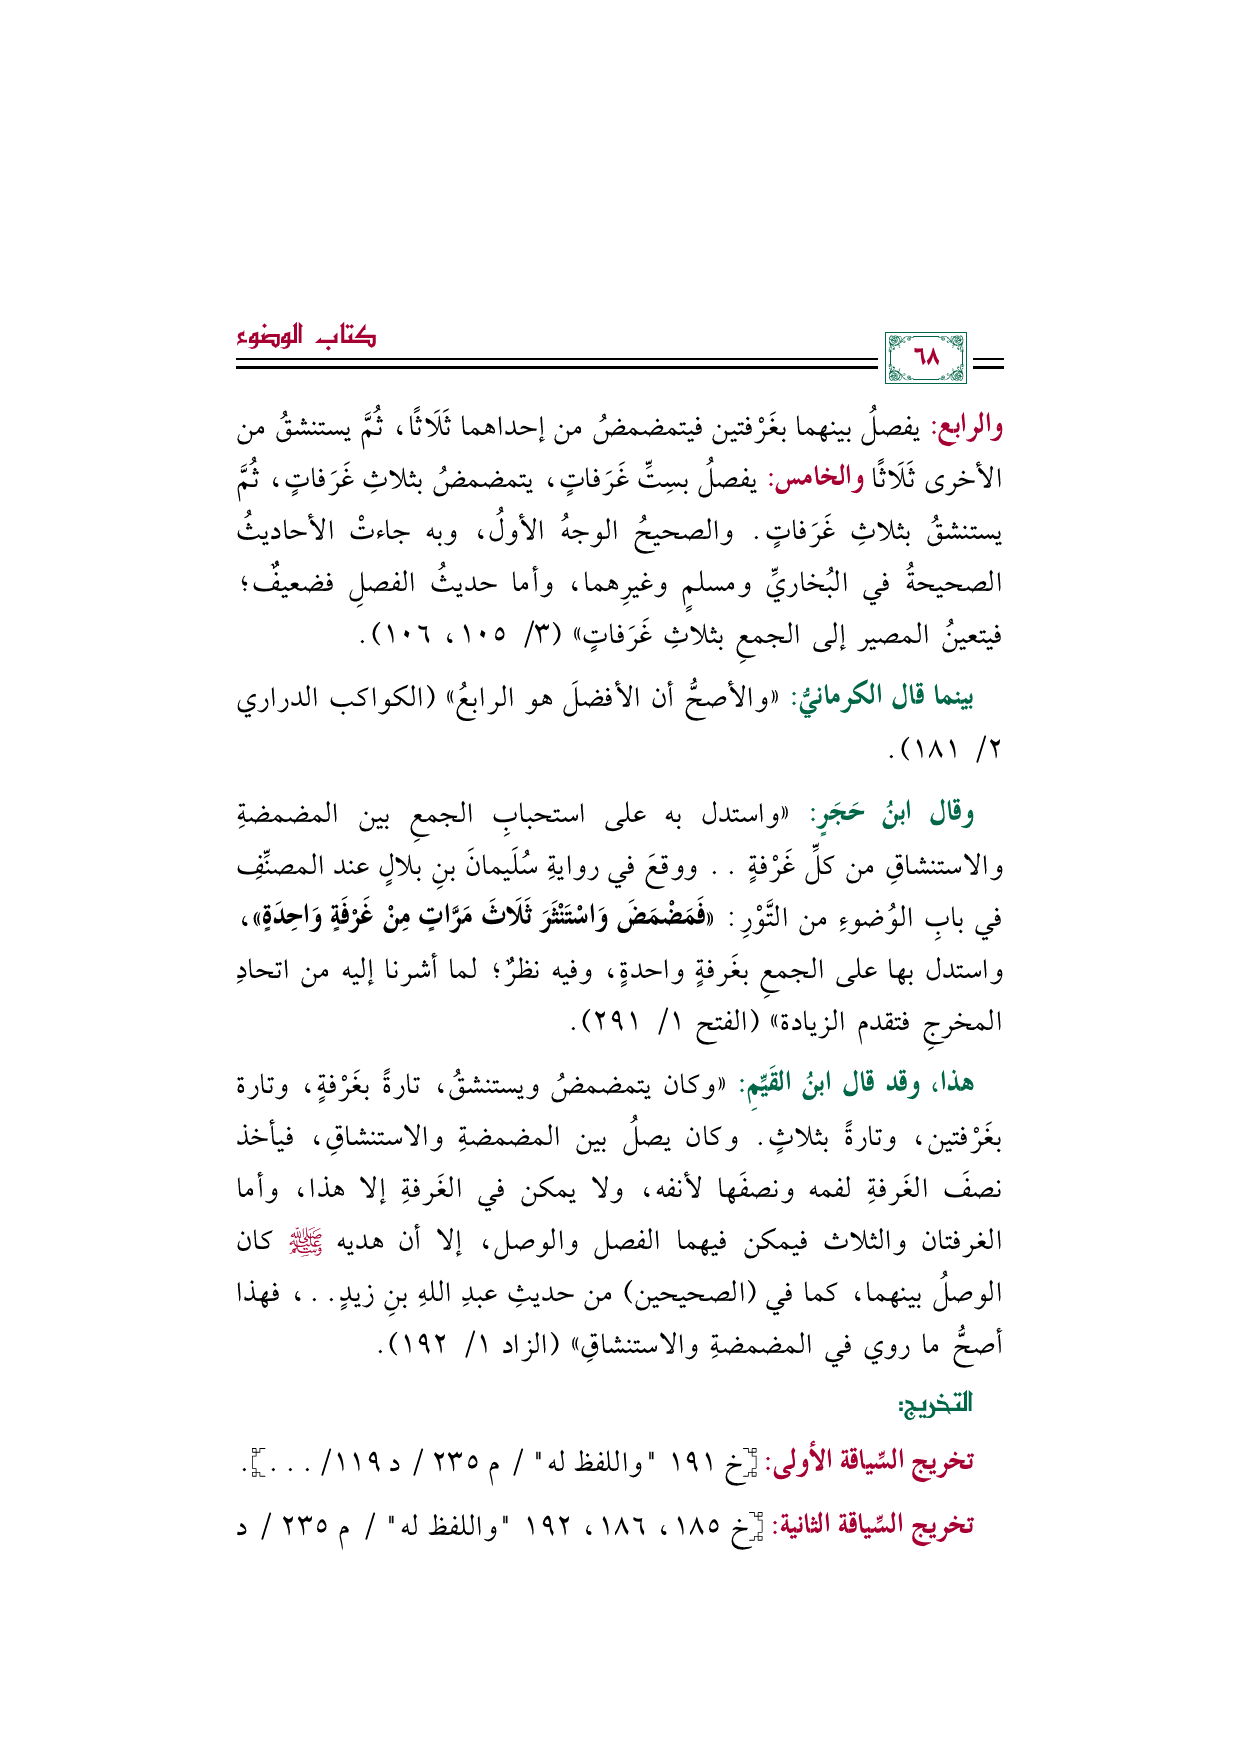 كتاب الوضوء
٦٨
والرابع: يفصلُ بينهما بغَرْفتين فيتمضمضُ من إحداهما ثَلَاثًا، ثُمَّ يستنشقُ من
الأخرى ثَلَاثًا والخامس: يفصلُ بسِتِّ غَرَفاتٍ، يتمضمضُ بثلاثِ غَرَفاتٍ، ثُمَّ
يستنشقُ بثلاثِ غَرَفاتٍ. والصحيحُ الوجهُ الأولُ، وبه جاءتْ الأحاديثُ
الصحيحةُ في البُخاريِّ ومسلمٍ وغيرِهما، وأما حديثُ الفصلِ فضعيفٌ؛
فيتعينُ المصير إلى الجمعِ بثلاثِ غَرَفاتٍ» (٣/ ١٠٥، ١٠٦).
بينما قال الكرمانيُّ: «والأصحُّ أن الأفضلَ هو الرابعُ» (الكواكب الدراري
٢/ ١٨١).
وقال ابنُ حَجَرٍ: «واستدل به على استحبابِ الجمعِ بين المضمضةِ
والاستنشاقِ من كلِّ غَرْفةٍ . . ووقعَ في روايةِ سُلَيمانَ بنِ بلالٍ عند المصنِّفِ
في بابِ الوُضوءِ من التَّوْرِ: «فَمَضْمَضَ وَاسْتَنْثَرَ ثَلَاثَ مَرَّاتٍ مِنْ غَرْفَةٍ وَاحِدَةٍ»،
واستدل بها على الجمعِ بغَرفةٍ واحدةٍ، وفيه نظرٌ؛ لما أشرنا إليه من اتحادِ
المخرجِ فتقدم الزيادة» (الفتح ١/ ٢٩١).
هذا، وقد قال ابنُ القَيِّمِ: «وكان يتمضمضُ ويستنشقُ، تارةً بغَرْفةٍ، وتارة
بغَرْفتين، وتارةً بثلاثٍ. وكان يصلُ بين المضمضةِ والاستنشاقِ، فيأخذ
نصفَ الغَرفةِ لفمه ونصفَها لأنفه، ولا يمكن في الغَرفةِ إلا هذا، وأما
الغرفتان والثلاث فيمكن فيهما الفصل والوصل، إلا أن هديه ﷺ كان
الوصلُ بينهما، كما في (الصحيحين) من حديثِ عبدِ اللهِ بنِ زيدٍ. . ، فهذا
أصحُّ ما روي في المضمضةِ والاستنشاقِ» (الزاد ١/ ١٩٢).
التخريج:
تخريج السِّياقة الأولى: [خ ١٩١ "واللفظ له" / م ٢٣٥ / د ١١٩/ . . . ].
تخريج السِّياقة الثانية: [خ ١٨٥، ١٨٦، ١٩٢ "واللفظ له" / م ٢٣٥ / د